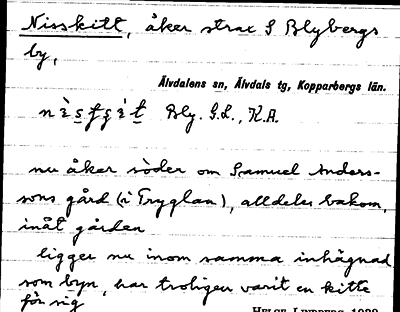 Nisskitt, åker strax S Blybergs
by,
Älvdalens sn, Älvdals tg, Kopparbergs län.
Bly. G.L., K.A.
nu åker söder om Samuel Anders-
sons gård (i Gryglan), alldeles bakom,
inåt gården
ligger nu inom samma inhägnad
som byn, har troligen varit en kitte
för sig